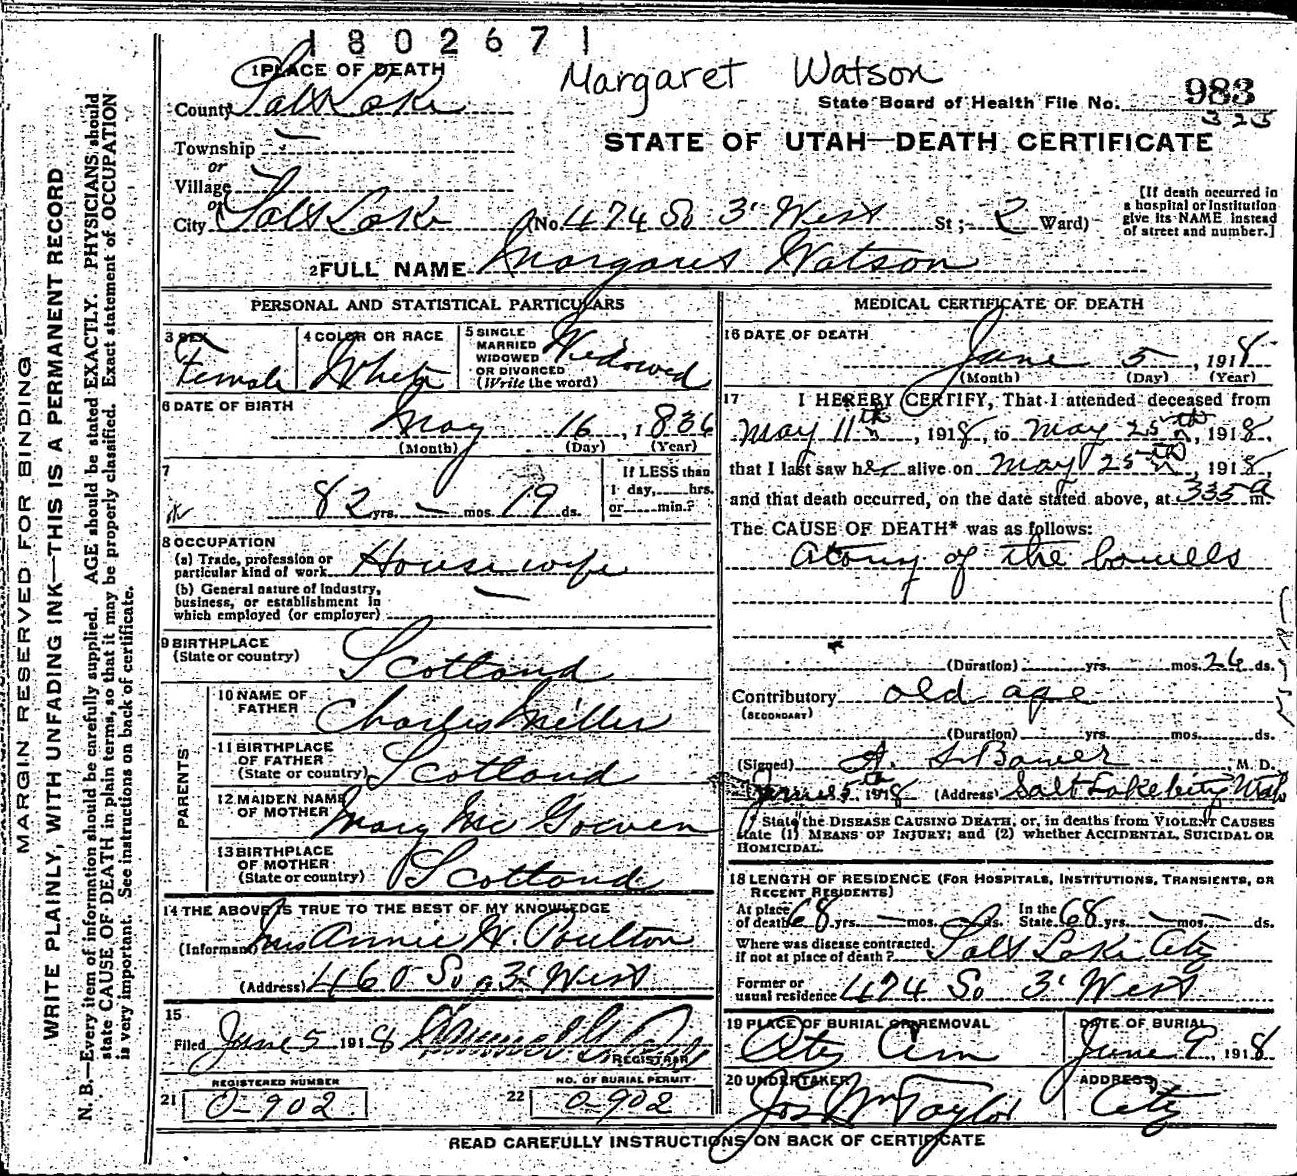 1802671
Margaret Watson
1 PLACE OF DEATH
County Salt Lake
State Board of Health File No. 983
325
STATE OF UTAH—DEATH CERTIFICATE
Township —
or
Village
or
City Salt Lake (No. 474 So 3' West St; 2 Ward)
[If death occurred in a hospital or institution give its NAME instead of street and number.]
2 FULL NAME Margaret Watson
PERSONAL AND STATISTICAL PARTICULARS
3 SEX Female
4 COLOR OR RACE White
5 SINGLE MARRIED WIDOWED OR DIVORCED (Write the word) Widowed
6 DATE OF BIRTH May 16, 1836
(Month) (Day) (Year)
7 82 yrs. — mos. 19 ds.
If LESS than 1 day, hrs. or min.?
8 OCCUPATION
(a) Trade, profession or particular kind of work House wife
(b) General nature of industry, business, or establishment in which employed (or employer) —
9 BIRTHPLACE (State or country) Scotland
PARENTS
10 NAME OF FATHER Charles Miller
11 BIRTHPLACE OF FATHER (State or country) Scotland
12 MAIDEN NAME OF MOTHER Mary Mc Gowen
13 BIRTHPLACE OF MOTHER (State or country) Scotland
14 THE ABOVE IS TRUE TO THE BEST OF MY KNOWLEDGE
(Informant) Mrs Annie W. Poulton
(Address) 460 So 3' West
15
Filed June 5 1918
REGISTRAR
21 REGISTERED NUMBER 0-902
22 NO. OF BURIAL PERMIT 0-902
MEDICAL CERTIFICATE OF DEATH
16 DATE OF DEATH
June 5, 1918
(Month) (Day) (Year)
17 I HEREBY CERTIFY, That I attended deceased from
May 11th, 1918, to May 25th, 1918,
that I last saw her alive on May 25th, 1918,
and that death occurred, on the date stated above, at 335 a m.
The CAUSE OF DEATH* was as follows:
atony of the bowells
(Duration) yrs. mos. 26 ds.
Contributory old age
(SECONDARY)
(Duration) yrs. mos. ds.
(Signed) A. S. Bower, M. D.
June 5th 1918 (Address) Salt Lake City Utah
* State the DISEASE CAUSING DEATH, or, in deaths from VIOLENT CAUSES
state (1) MEANS OF INJURY; and (2) whether ACCIDENTAL, SUICIDAL OR
HOMICIDAL.
18 LENGTH OF RESIDENCE (FOR HOSPITALS, INSTITUTIONS, TRANSIENTS, OR
RECENT RESIDENTS)
At place of death 68 yrs. — mos. — ds. In the State 68 yrs. — mos. — ds.
Where was disease contracted, if not at place of death? Salt Lake City
Former or usual residence 474 So 3' West
19 PLACE OF BURIAL OR REMOVAL City Cem
DATE OF BURIAL June 9, 1918
20 UNDERTAKER Jos Wm Taylor
ADDRESS City
READ CAREFULLY INSTRUCTIONS ON BACK OF CERTIFICATE
MARGIN RESERVED FOR BINDING
WRITE PLAINLY, WITH UNFADING INK—THIS IS A PERMANENT RECORD
N. B.—Every item of information should be carefully supplied. AGE should be stated EXACTLY. PHYSICIANS should
state CAUSE OF DEATH in plain terms, so that it may be properly classified. Exact statement of OCCUPATION
is very important. See instructions on back of certificate.